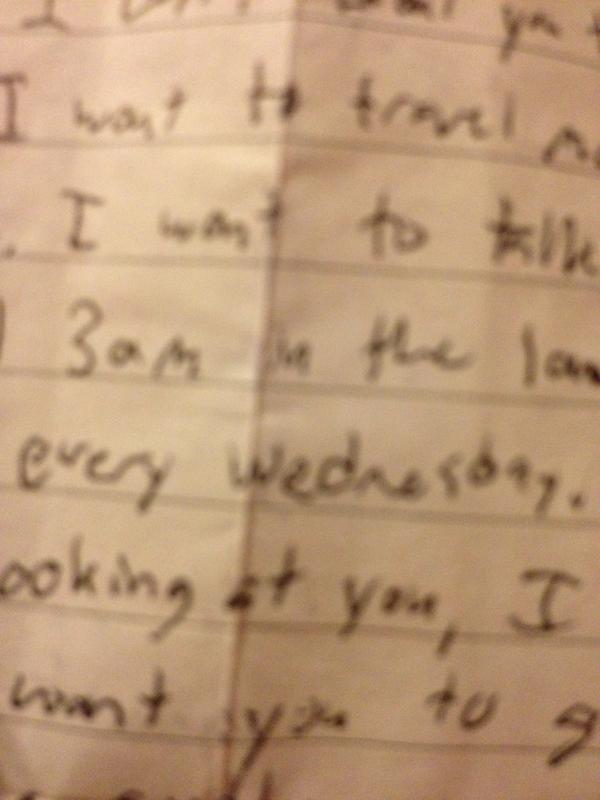 I want to travel
. I want to talk
3am in the
every Wednesday.
ooking at you, I
want you to g